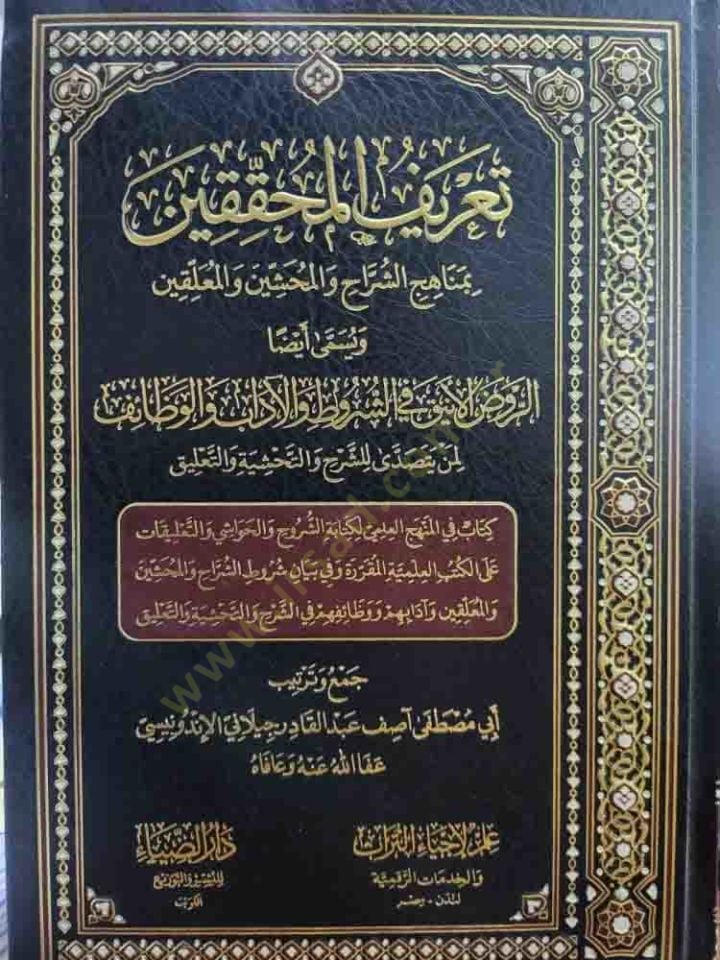 تَعْرِيفُ المُحَقِّقِينَ
بِمَنَاهِجِ الشُّرَّاحِ وَالمُحَشِّينَ وَالمُعَلِّقِينَ
وَيُسَمَّى أَيْضًا
الرَّوْضُ الأَنِيقُ فِي الشُّرُوطِ وَالآدَابِ وَالوَظَائِفِ
لِمَنْ يَتَصَدَّى لِلشَّرْحِ وَالتَّحْشِيَةِ وَالتَّعْلِيقِ
كِتَابٌ فِي المَنْهَجِ العِلْمِيِّ لِكِتَابَةِ الشُّرُوحِ وَالحَوَاشِي وَالتَّعْلِيقَاتِ
عَلَى الكُتُبِ العِلْمِيَّةِ المُقَرَّرَةِ وَفِي بَيَانِ شُرُوطِ الشُّرَّاحِ وَالمُحَشِّينَ
وَالمُعَلِّقِينَ وَآدَابِهِمْ وَوَظَائِفِهِمْ فِي الشَّرْحِ وَالتَّحْشِيَةِ وَالتَّعْلِيقِ
جَمْعُ وَتَرْتِيبُ
أَبِي مُصْطَفَى آصِف عَبْدِ القَادِر جِيلَانِي الإِنْدُونِيسِيِّ
عَفَا اللهُ عَنْهُ وَعَافَاهُ
علم لإحياء التراث
والخدمات الرقمية
لندن - مصر
دار الضياء
للنشر والتوزيع
الكويت
www.irsad.com.tr